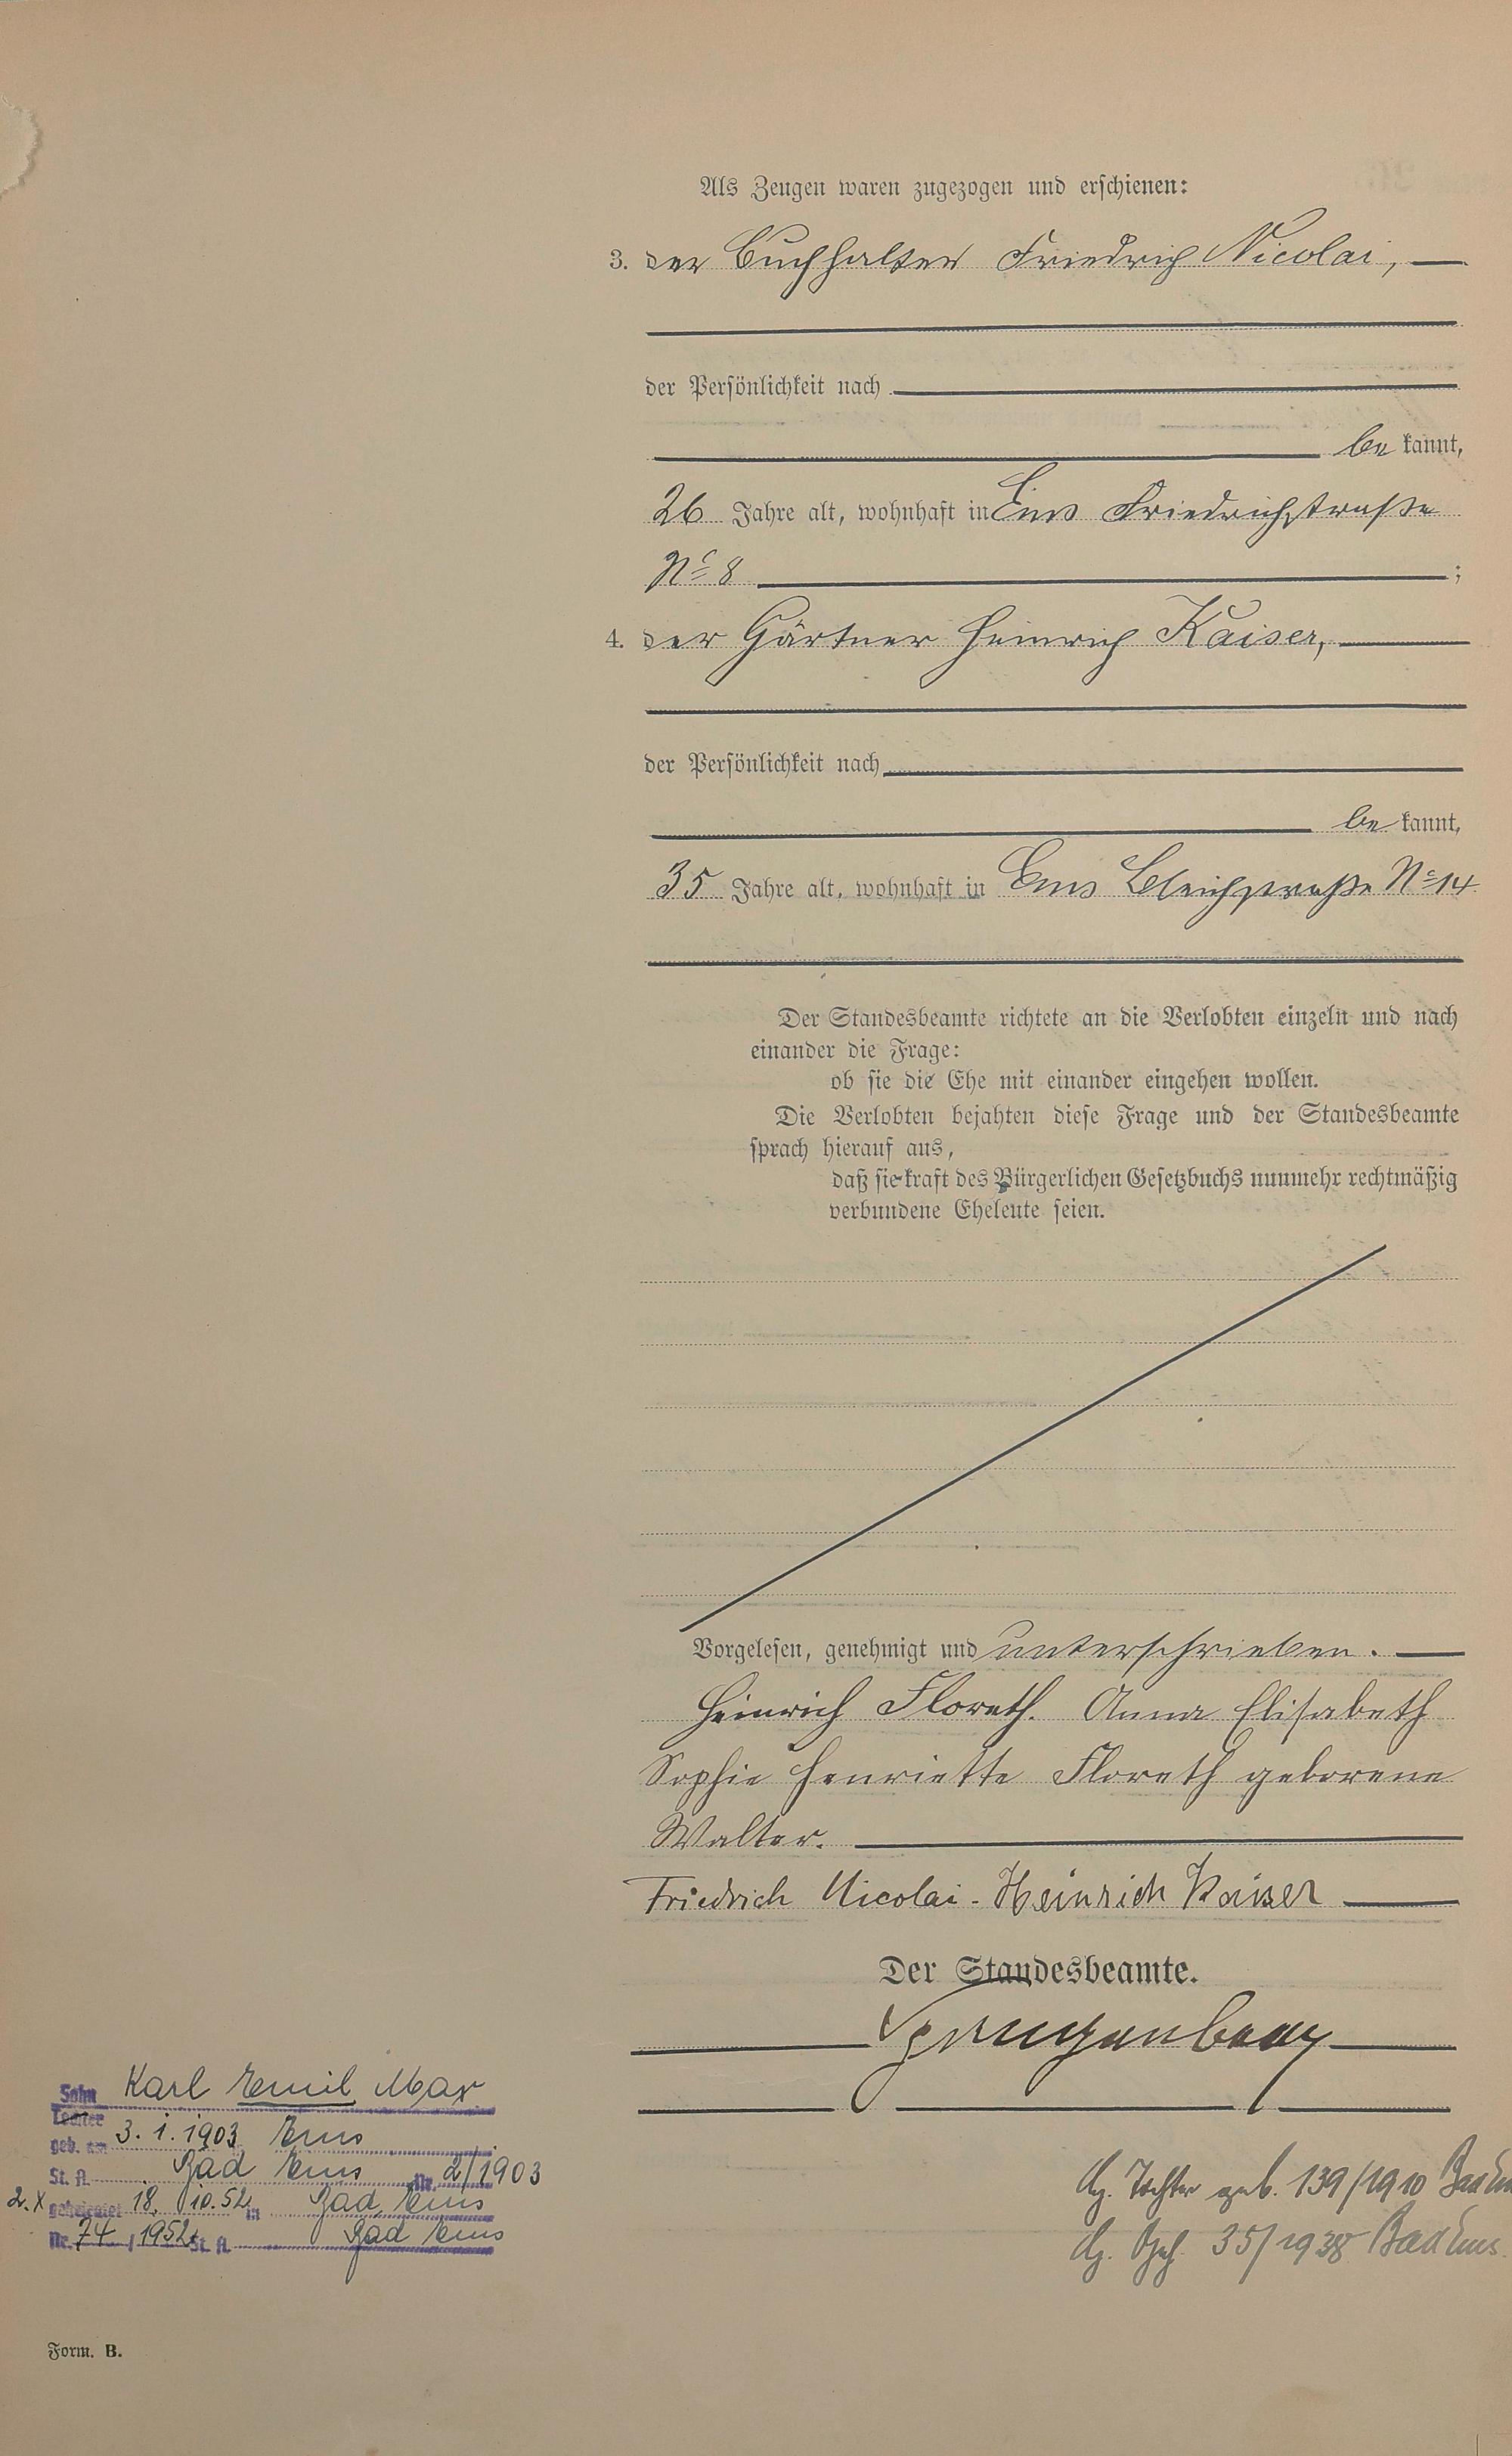 Als Zeugen waren zugezogen und erschienen:
3. der Buchhalter Friedrich Nicolai,
der Persönlichkeit nach
be kannt,
26 Jahre alt, wohnhaft in Ems Friedrichstraße
No 8 ;
4. der Gärtner Heinrich Kaiser,
der Persönlichkeit nach
be kannt,
35 Jahre alt, wohnhaft in Ems Bleichstraße No 14
Der Standesbeamte richtete an die Verlobten einzeln und nach
einander die Frage:
ob sie die Ehe mit einander eingehen wollen.
Die Verlobten bejahten diese Frage und der Standesbeamte
sprach hierauf aus,
daß sie kraft des Bürgerlichen Gesetzbuchs nunmehr rechtmäßig
verbundene Eheleute seien.
Vorgelesen, genehmigt und unterschrieben.
Heinrich Floreth. Anna Elisabeth
Sophie Henriette Floreth geborene
Walter.
Friedrich Nicolai - Heinrich Kaiser
Der Standesbeamte.
Sohn Karl Emil Max
Tochter
geb. am 3. 1. 1903 Ems
St. A. Bad Ems Nr. 2/1903
2. X geheiratet 18. 10. 52 in Bad Ems
Nr. 74 / 1952 St. A. Bad Ems
Tochter geb. 139/1910 Bad Em
35/1938 Bad Ems.
Form. B.